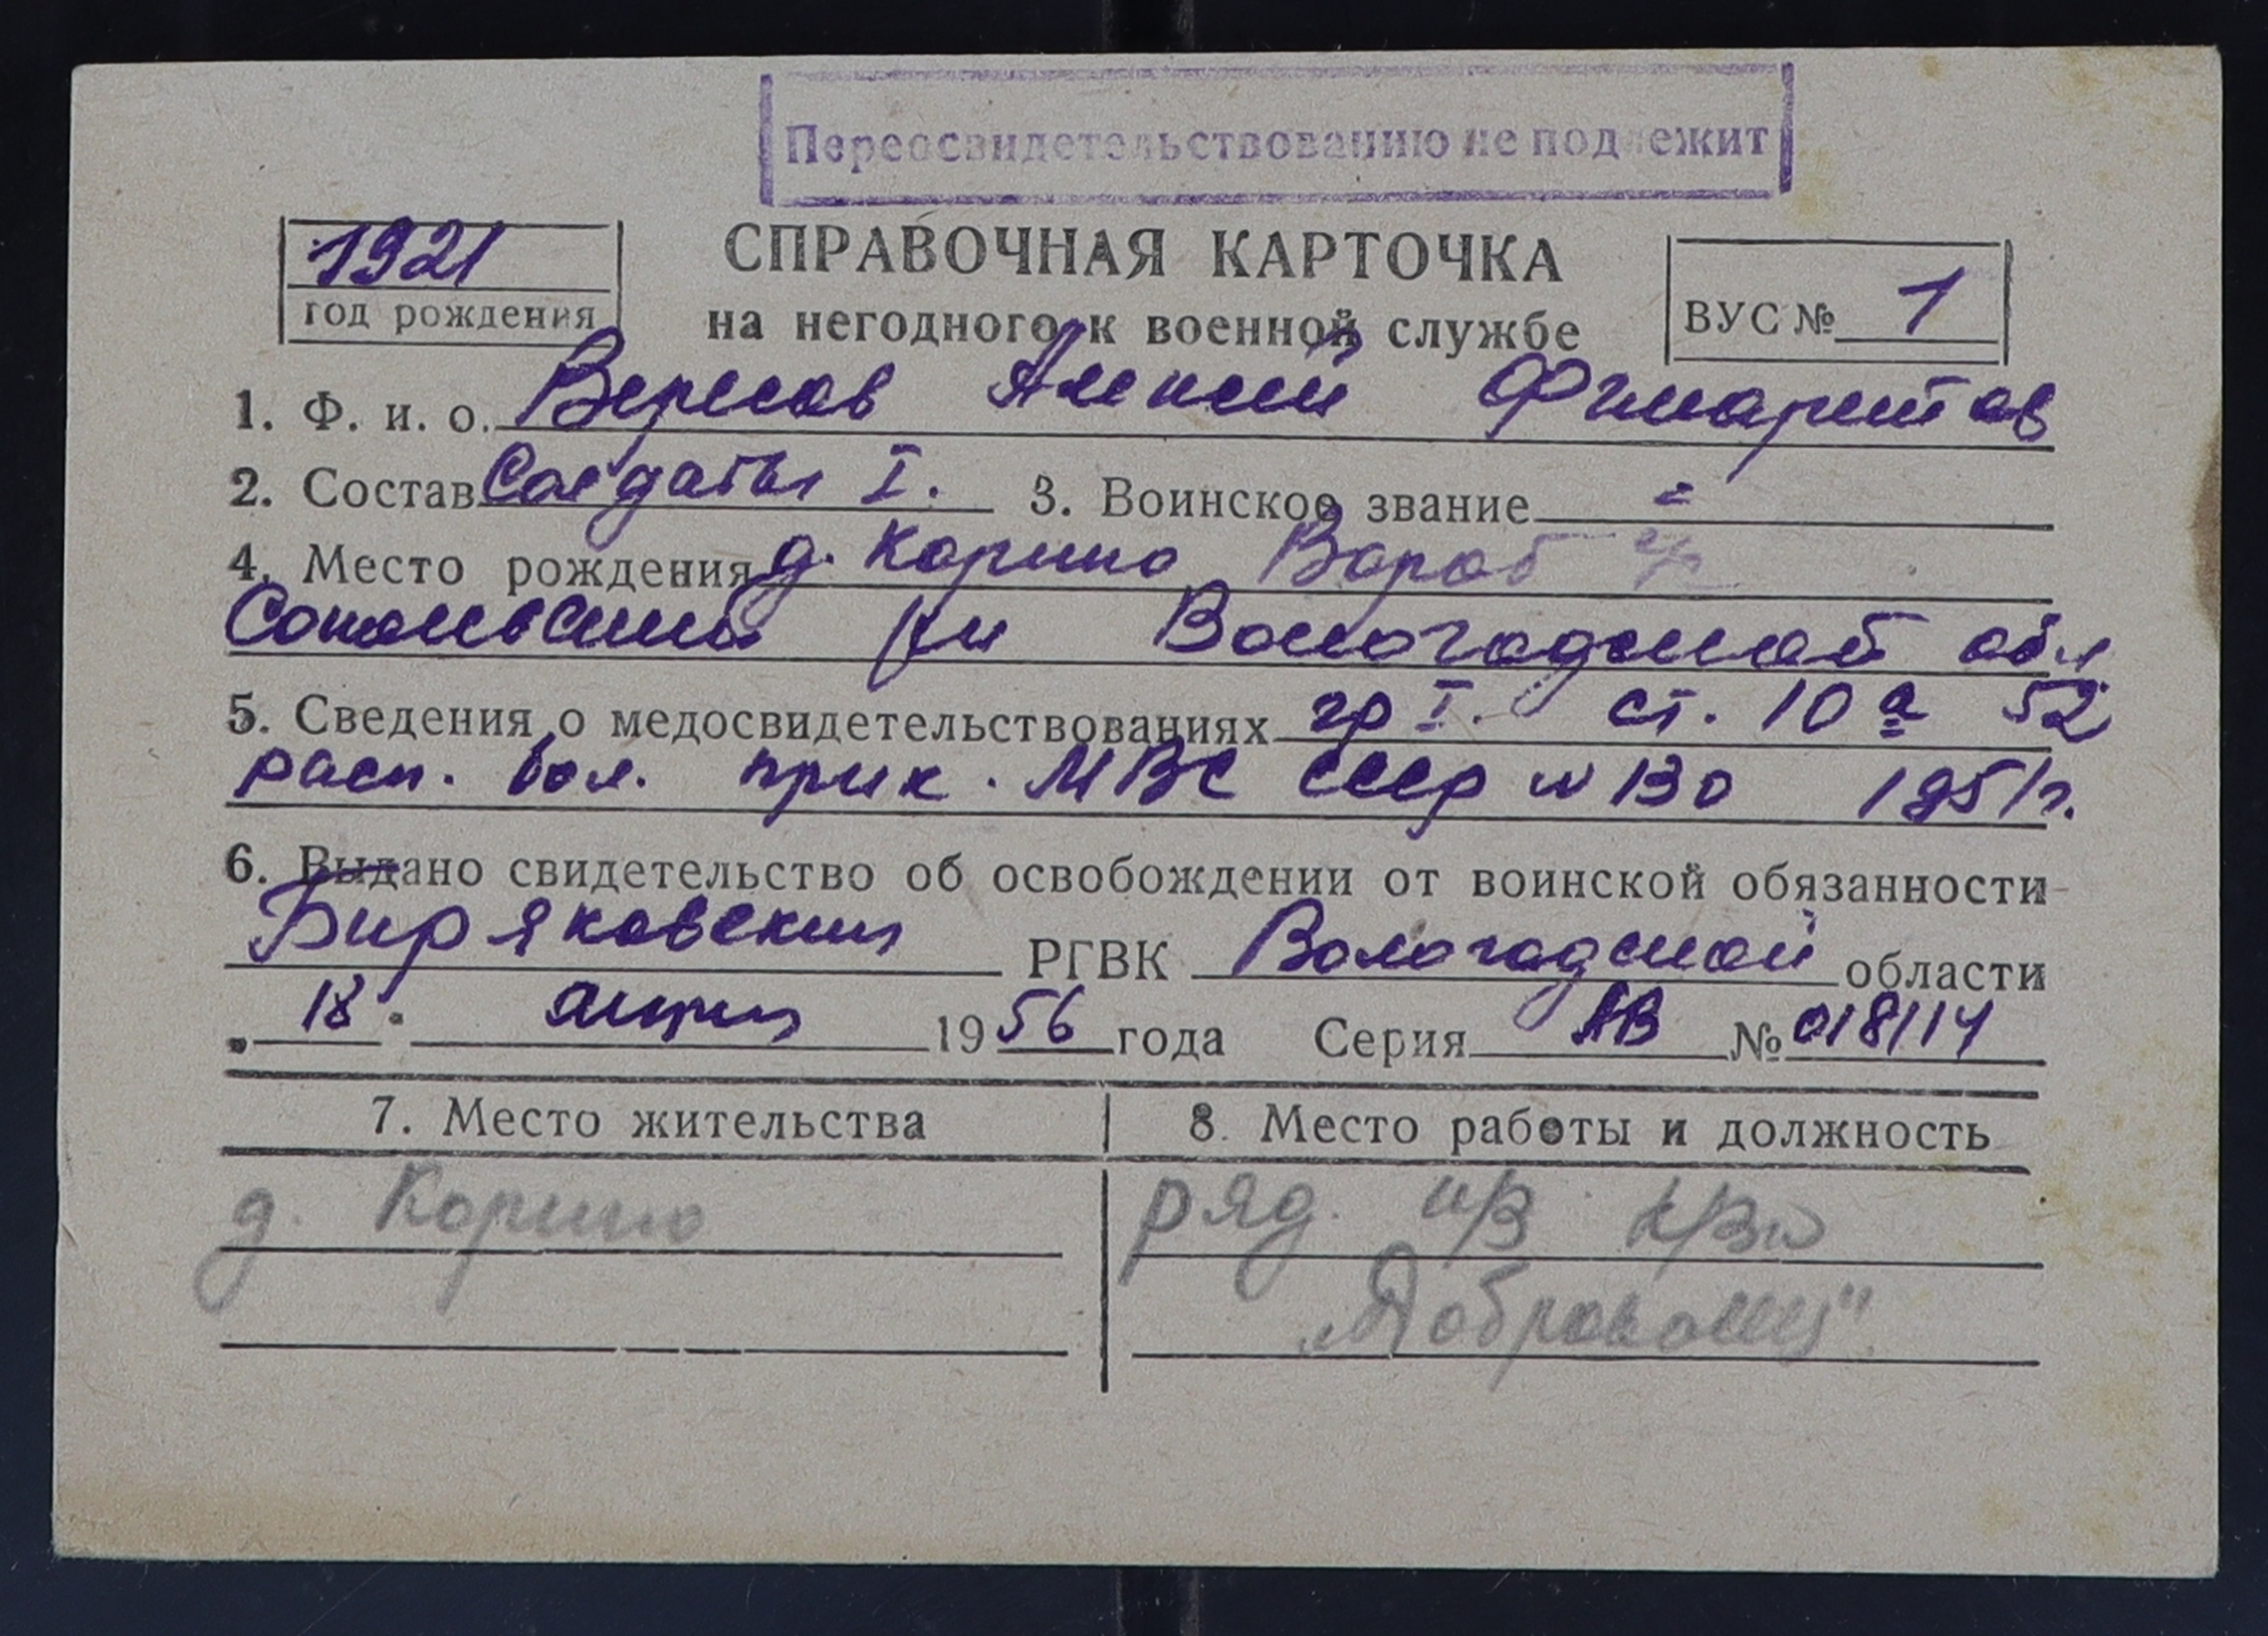 Переосвидетельствованию не подлежит
1921
год рождения
СПРАВОЧНАЯ КАРТОЧКА
на негодного к военной службе
ВУС № 1
1. Ф. и. о. Вересов Алексей Филаретов
2. Состав Солдаты I. 3. Воинское звание =
4. Место рождения д. Корино Вороб
Сокольский рн Вологодской обл
5. Сведения о медосвидетельствованиях гр I. ст. 10 а 52
расп. бол. прик. МВС СССР № 130 1951г.
6. Выдано свидетельство об освобождении от воинской обязанности
Биряковским РГВК Вологодской области
"18" 1956 года Серия АВ № 018114
7. Место жительства
8. Место работы и должность
д. Корино
ряд. к-з
"Доброволец"